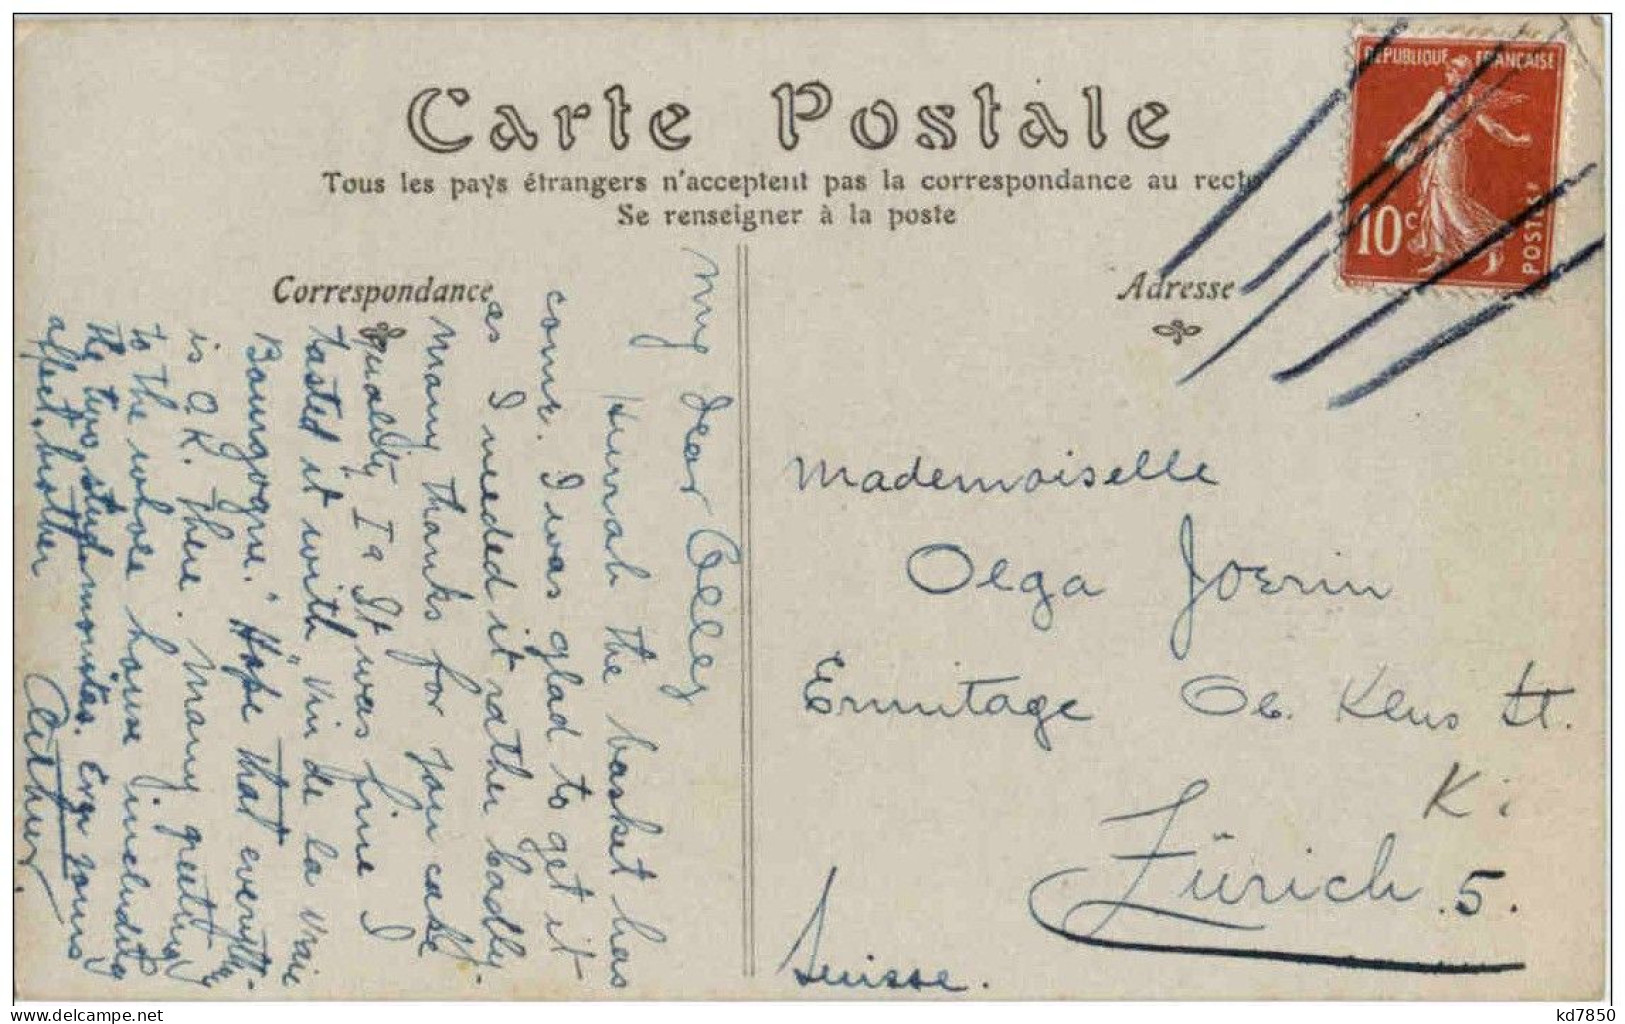 Carte Postale
Tous les pays étrangers n'acceptent pas la correspondance au recto
Se renseigner à la poste
Correspondance
Adresse
REPUBLIQUE FRANÇAISE
10c
POSTES
My dear Olley
Hurrah the basket has
come. I was glad to get it
as I needed it rather badly.
Many thanks for you cake
quality Ia It was fine I
tasted it with "Vin de la vraie
Bourgogne." Hope that everyth-
is O.K. there. Many greetings
to the whole house including
the two. Ever yours
affect. brother
Arthur.
Mademoiselle
Olga Joerin
Ermitage Ob. Klus St.
K
Zürich .5.
Suisse.
delcampe.net
kd7850